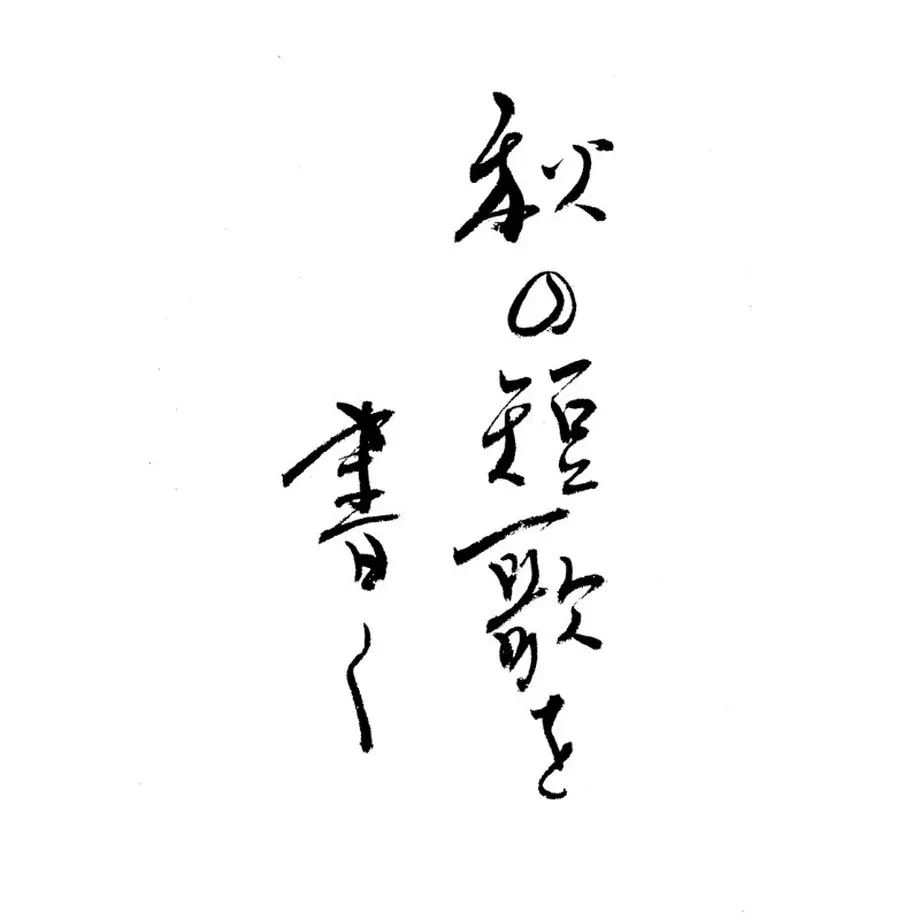 秋の短歌を
書く